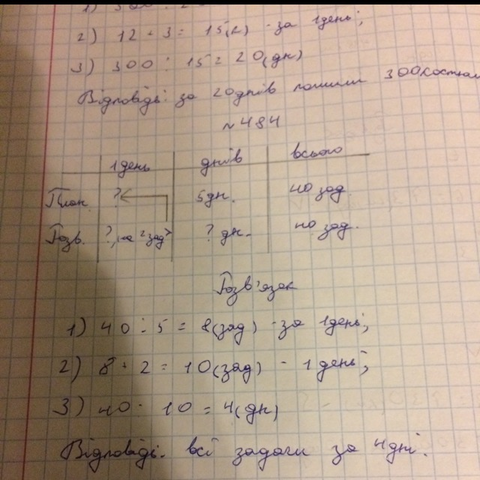 2) 12 + 3 = 15(к) - за 1день;
3) 300 : 15 = 20(дн)
Відповідь: за 20днів пошили 300костюм
№484
1день днів всього
План. ? 5дн. 40 зад
Розв. ?, на 2зад> ? дн. 40 зад.
Розв'язок
1) 40 : 5 = 8(зад) - за 1день;
2) 8 + 2 = 10(зад) - 1день;
3) 40 : 10 = 4(дн)
Відповідь: всі задачі за 4дні.